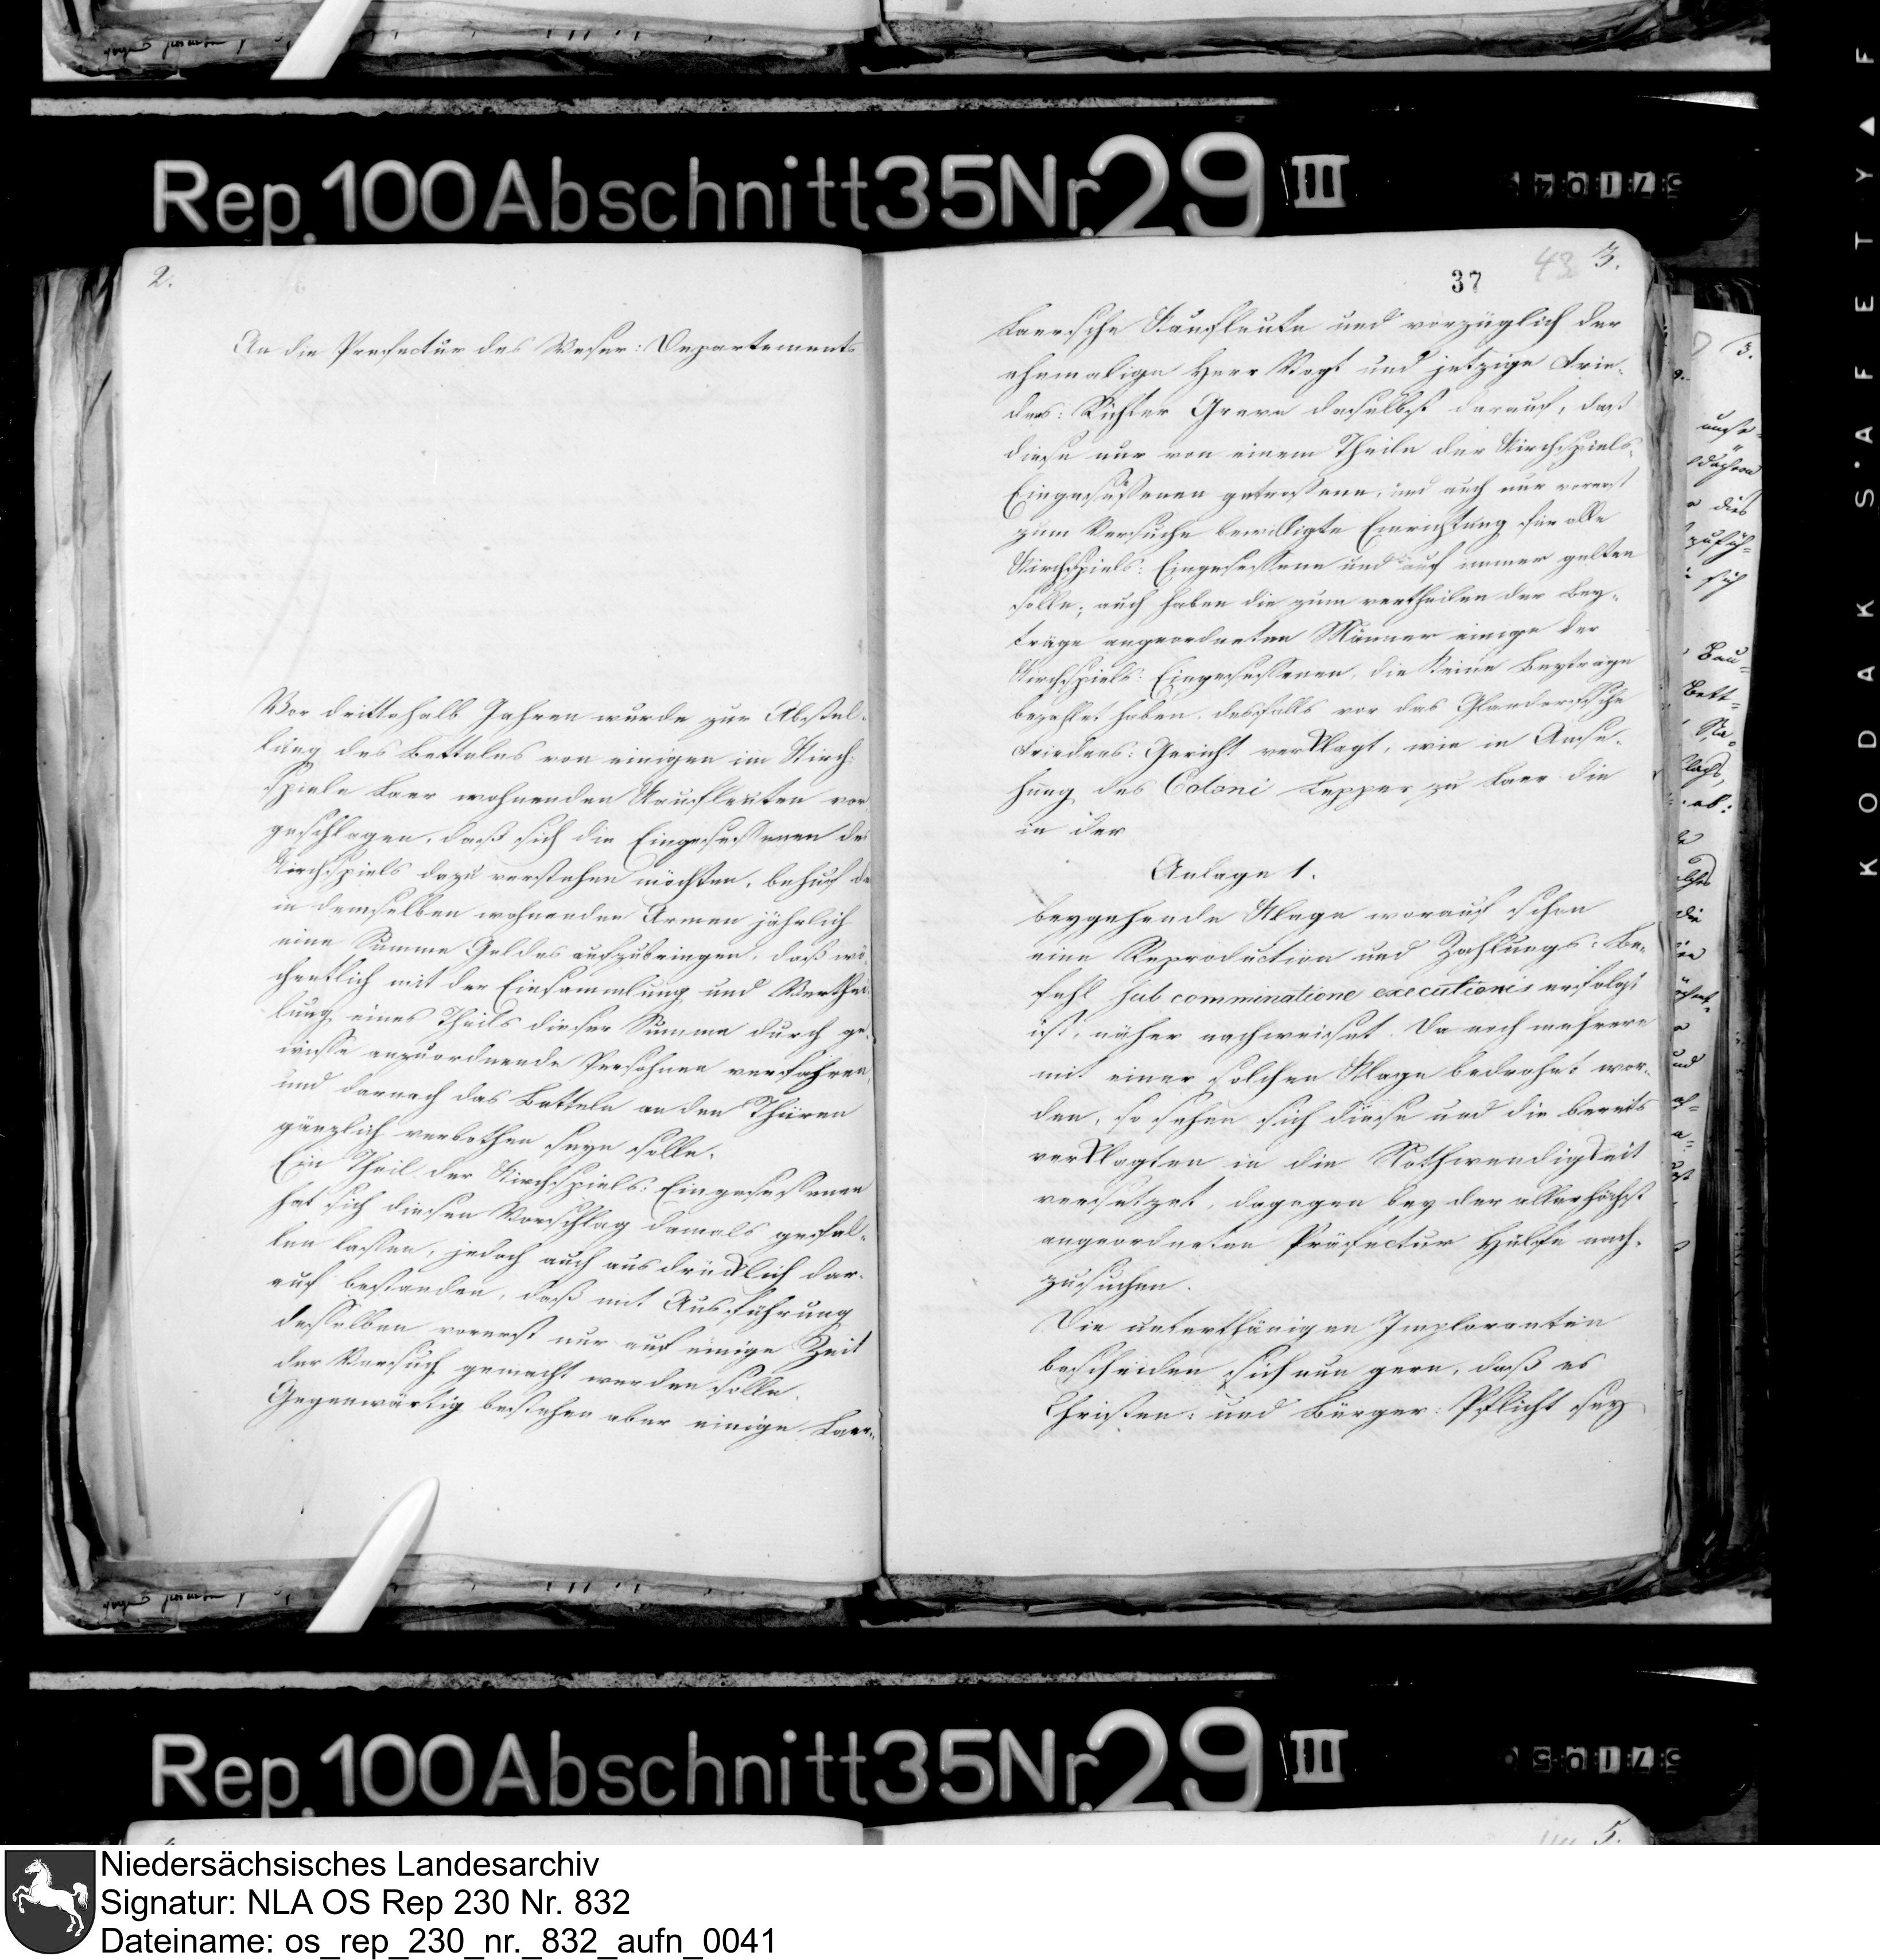 Rep. 100 Abschnitt 35 Nr. 29 III
2.
An die Praefectur des Weser: Departements
Vor drittehalb Jahren wurde zur Abstel-
lung des Bettelns von einigen im Kirch-
spiele Laer wohnenden Kaufleuten vor-
geschlagen, daß sich die Eingesessenen des
Kirchspiels dazu verstehen möchten, behuf der
in demselben wohnenden Armen jährlich
eine Summe Geldes aufzubringen, daß wö-
chentlich mit der Einsammlung und Verthei-
lung eines Theils dieser Summe durch ge-
wisse anzuordnende Persohnen verfahren,
und darnach das Betteln an den Thüren
gänzlich verbothen seyn solle.
Ein Theil der Kirchspiels: Eingesessenen
hat sich diesen Vorschlag damals gefal-
len lassen, jedoch auch ausdrücklich dar-
auf bestanden, daß mit Ausführung
desselben vorerst nur auf einige Zeit
der Versuch gemacht werden solle.
Gegenwärtig bestehen aber einige Laer-
37
43
3.
Laersche Kaufleute und vorzüglich der
ehemalige Herr Vogt und jetzige Frie-
dens: Richter Greve daselbst darauf, daß
diese nur von einem Theile der Kirchspiels-
Eingesessenen getroffene, und auch nur vorerst
zum Versuche bewilligte Einrichtung für alle
Kirchspiels: Eingesessene und auf immer gelten
solle; auch haben die zum vertheilen der Bey-
träge angeordneten Männer einige der
Kirchspiels: Eingesessenen, die keine Beyträge
bezahlet haben, desfalls vor das Glandorfsche
Friedens: Gericht verklagt, wie in Anse-
hung des Coloni Lepper zu Laer die
in der
Anlage 1.
beygehende Klage worauf schon
eine Reproduction und Zahlungs: Be-
fehl sub comminatione executionis erfolgt
ist, näher nachweiset. Da noch mehrere
mit einer solchen Klage bedrohet wor-
den, so sehen sich diese und die bereits
verklagten in die Nothwendigkeit
versetzet, dagegen bey der allerhöchst
angeordneten Präfectur Hülfe nach-
zusuchen.
Die unterthänigen Imploranten
bescheiden sich nun gern, daß es
Christen: und Bürger: Pflicht sey
KODAK SAFETY
Rep. 100 Abschnitt 35 Nr. 29 III
5.
Niedersächsisches Landesarchiv
Signatur: NLA OS Rep 230 Nr. 832
Dateiname: os_rep_230_nr._832_aufn_0041